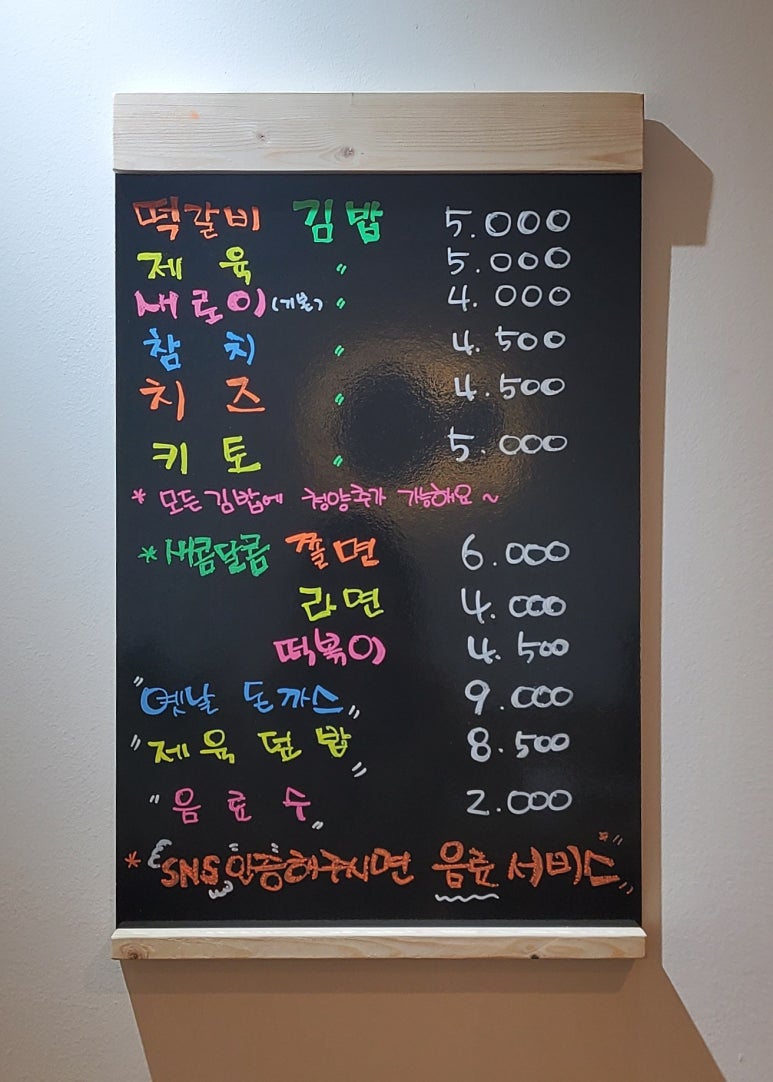 떡갈비 김밥 5.000
제육 〃 5.000
새로이(기본) 〃 4.000
참치 〃 4.500
치즈 〃 4.500
키토 〃 5.000
* 모든김밥에 청양추가 가능해요~
*새콤달콤 쫄면 6.000
라면 4.000
떡볶이 4.500
"옛날 돈까스" 9.000
"제육덮밥" 8.500
"음료수" 2.000
* SNS 인증해주시면 음료 서비스"